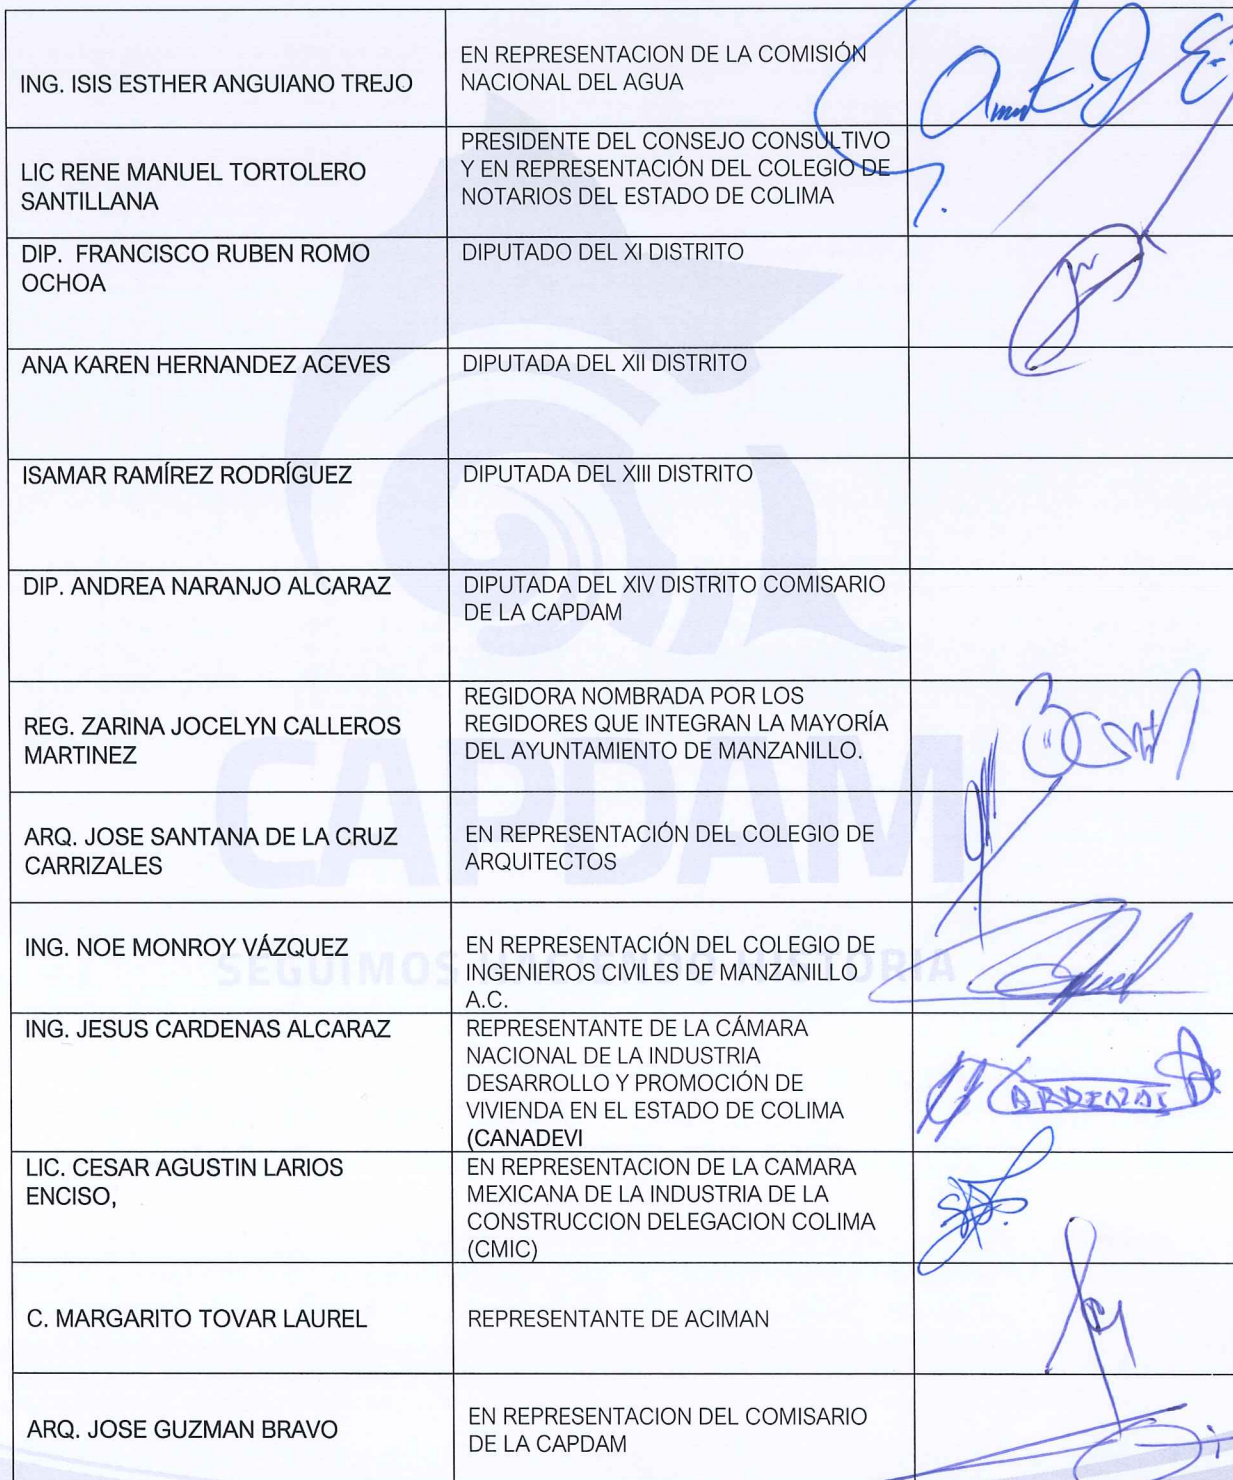 ING. ISIS ESTHER ANGUIANO TREJO
EN REPRESENTACION DE LA COMISIÓN
NACIONAL DEL AGUA
LIC RENE MANUEL TORTOLERO
SANTILLANA
PRESIDENTE DEL CONSEJO CONSULTIVO
Y EN REPRESENTACIÓN DEL COLEGIO DE
NOTARIOS DEL ESTADO DE COLIMA
DIP. FRANCISCO RUBEN ROMO
OCHOA
DIPUTADO DEL XI DISTRITO
ANA KAREN HERNANDEZ ACEVES
DIPUTADA DEL XII DISTRITO
ISAMAR RAMÍREZ RODRÍGUEZ
DIPUTADA DEL XIII DISTRITO
DIP. ANDREA NARANJO ALCARAZ
DIPUTADA DEL XIV DISTRITO COMISARIO
DE LA CAPDAM
REG. ZARINA JOCELYN CALLEROS
MARTINEZ
REGIDORA NOMBRADA POR LOS
REGIDORES QUE INTEGRAN LA MAYORÍA
DEL AYUNTAMIENTO DE MANZANILLO.
CAPDAM
ARQ. JOSE SANTANA DE LA CRUZ
CARRIZALES
EN REPRESENTACIÓN DEL COLEGIO DE
ARQUITECTOS
ING. NOE MONROY VÁZQUEZ
EN REPRESENTACIÓN DEL COLEGIO DE
INGENIEROS CIVILES DE MANZANILLO
A.C.
SEGUIMOS HACIENDO HISTORIA
ING. JESUS CARDENAS ALCARAZ
REPRESENTANTE DE LA CÁMARA
NACIONAL DE LA INDUSTRIA
DESARROLLO Y PROMOCIÓN DE
VIVIENDA EN EL ESTADO DE COLIMA
(CANADEVI
CARDENAS
LIC. CESAR AGUSTIN LARIOS
ENCISO,
EN REPRESENTACION DE LA CAMARA
MEXICANA DE LA INDUSTRIA DE LA
CONSTRUCCION DELEGACION COLIMA
(CMIC)
C. MARGARITO TOVAR LAUREL
REPRESENTANTE DE ACIMAN
ARQ. JOSE GUZMAN BRAVO
EN REPRESENTACION DEL COMISARIO
DE LA CAPDAM